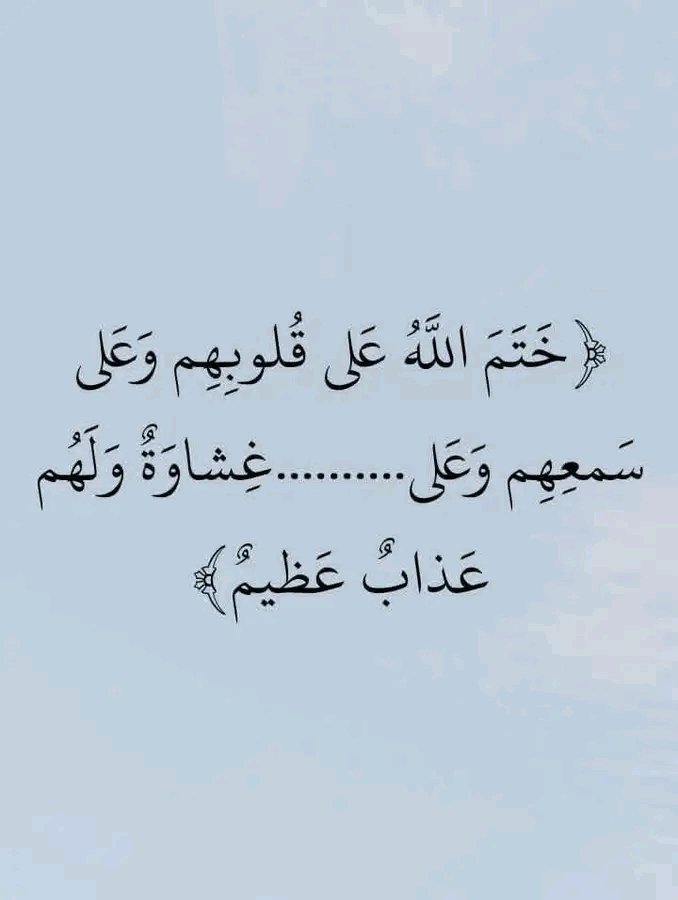 ﴿خَتَمَ اللَّهُ عَلى قُلوبِهِم وَعَلى
سَمعِهِم وَعَلى..........غِشاوَةٌ وَلَهُم
عَذابٌ عَظيمٌ﴾